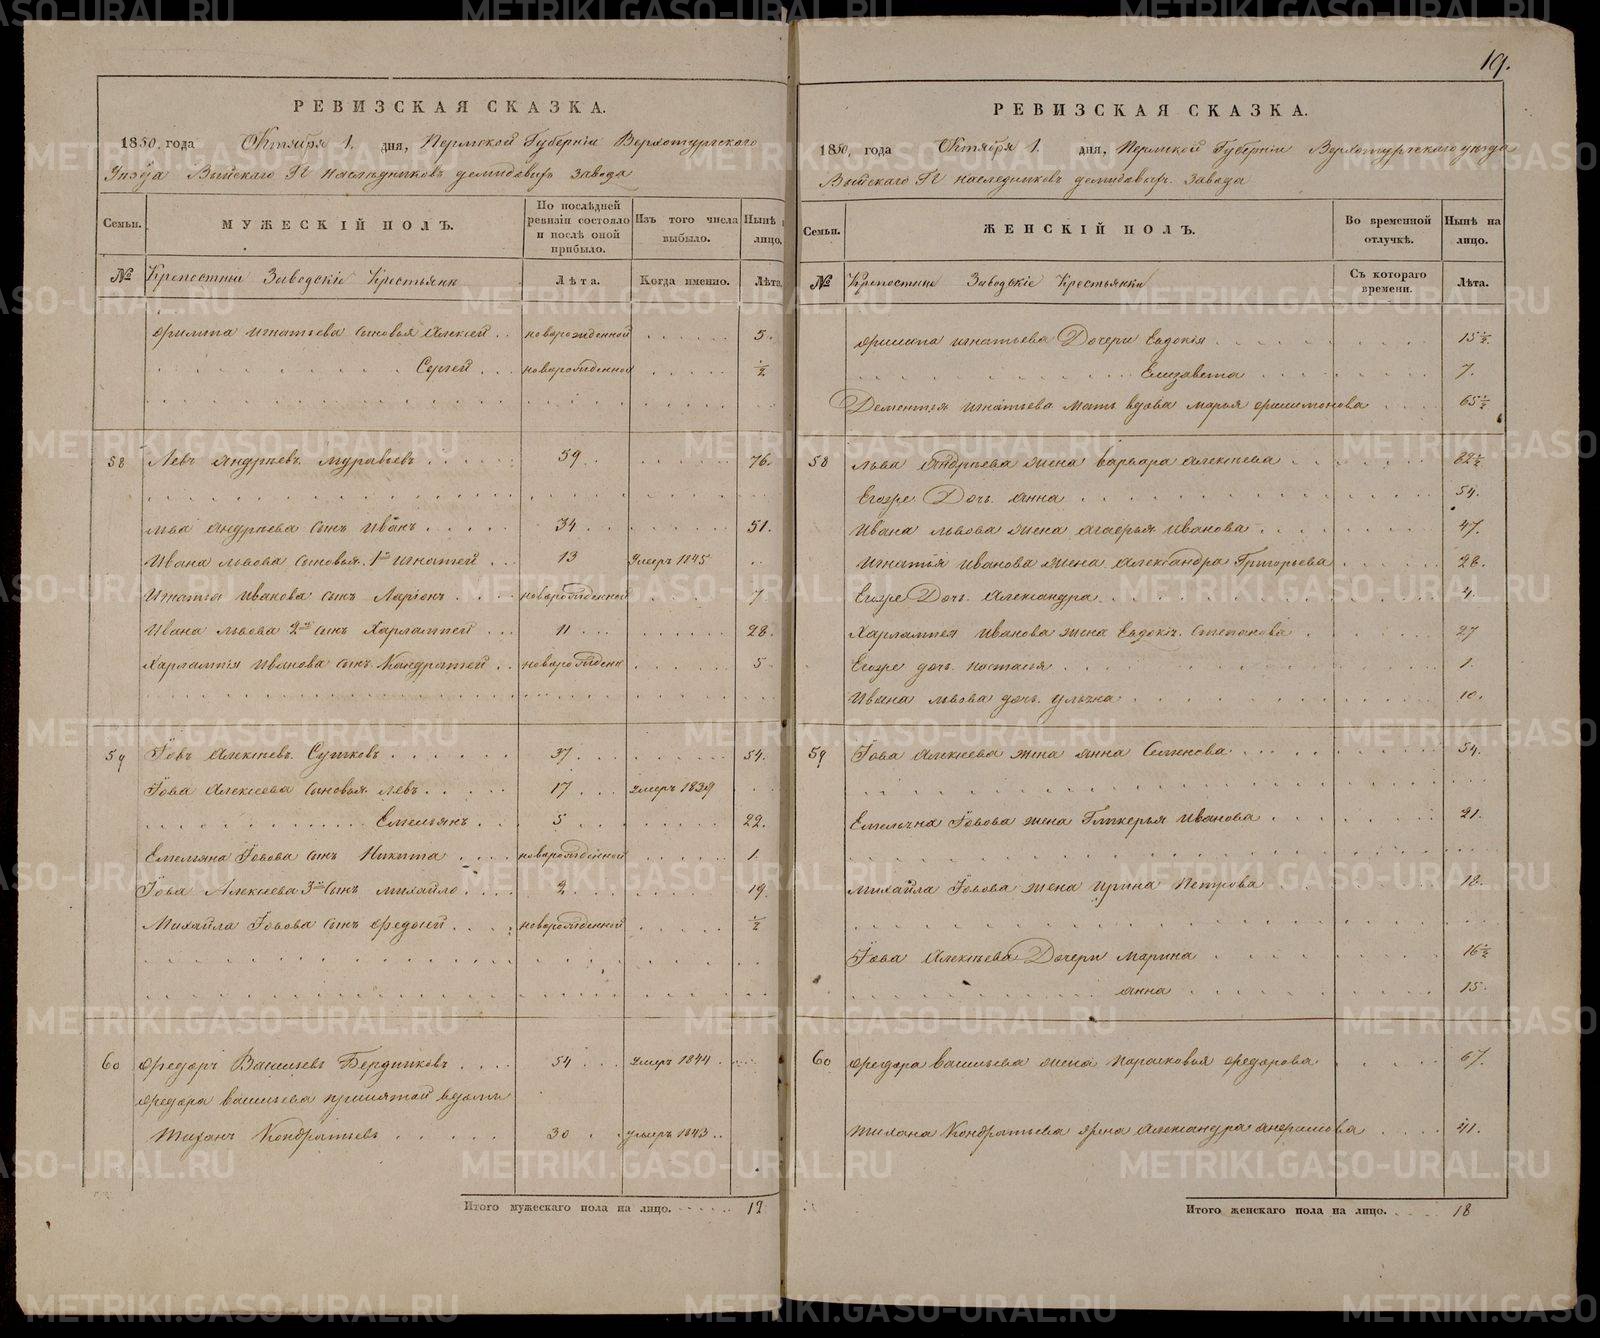 19.
РЕВИЗСКАЯ СКАЗКА.
1850, года Октября 1. дня, Пермской Губерніи Верхотурскаго
Уезда Выйскаго Гг наследниковъ демидовыхъ завода
Семьи.
МУЖЕСКІЙ ПОЛЪ.
По послѣдней ревизіи состояло и послѣ оной прибыло.
Изъ того числа выбыло.
Нынѣ на лицо.
№ Крепостныи Заводскіе Крестьяни
Лѣта.
Когда именно.
Лѣта.
Филипа Игнатьева сыновья Алексей новорожденной 5.
Сергей новорожденной ½
58 Левъ Андреевъ Муравьевъ 59 76.
Льва Андреева сынъ Иванъ 34 51.
Ивана Львова сыновья 1й Игнатей 13 умеръ 1845
Игнатья Иванова сынъ Ларіонъ новорожденной 7
Ивана Львова 2й сынъ Харлампей 11 28.
Харлампія Иванова сынъ Кондратей новорожденн 5
59 Іовъ Алексеевъ Сутковъ 37 54.
Іова Алексеева сыновья Левъ 17 умеръ 1839
Емельянъ 5 22.
Емельяна Іовова сынъ Никита новорожденной 1
Іова Алексеева 3й сынъ Михайло 2 19
Михайла Іовова сынъ Федосей новорожденной ½
60 Федоръ Васильевъ Бердниковъ 54 умеръ 1844
Федора Васильева принятой
Тиханъ Кондратьевъ 30 умеръ 1843
Итого мужескаго пола на лицо. 12
РЕВИЗСКАЯ СКАЗКА.
1850, года Октября 1. дня, Пермской Губерніи Верхотурскаго уезда
Выйскаго Гг наследниковъ демидовыхъ завода
Семьи.
ЖЕНСКІЙ ПОЛЪ.
Во временной отлучкѣ.
Нынѣ на лицо.
№ Крепостныи Заводскіе Крестьянки
Съ котораго времени.
Лѣта.
Филипа Игнатьева Дочери Евдокія 15½
Елизавета 7.
Дементья Игнатьева мать вдова Марья Филимонова 65½
58 Льва Андреева жена Варвара Алексеева 82½
Егоже Дочь Анна 54.
Ивана Львова жена Агафья Иванова 47.
Игнатья Иванова жена Александра Григорьева 28.
Егоже Дочь Александра 4.
Харлампея Иванова жена Евдокія Степанова 27
Егоже дочь Настасья 1.
Ивана Львова дочь Ульяна 10.
59 Іова Алексеева жена Анна Семенова 54.
Емельяна Іовова жена Гликерья Иванова 21.
Михайла Іовова жена Ирина Петрова 18.
Іова Алексеева Дочери Марина 16½
Анна 15.
60 Федора Васильева жена Парасковья Федорова 67.
Тихана Кондратьева жена Александра Анфилова 41.
Итого женскаго пола на лицо. 18
METRIKI.GASO-URAL.RU